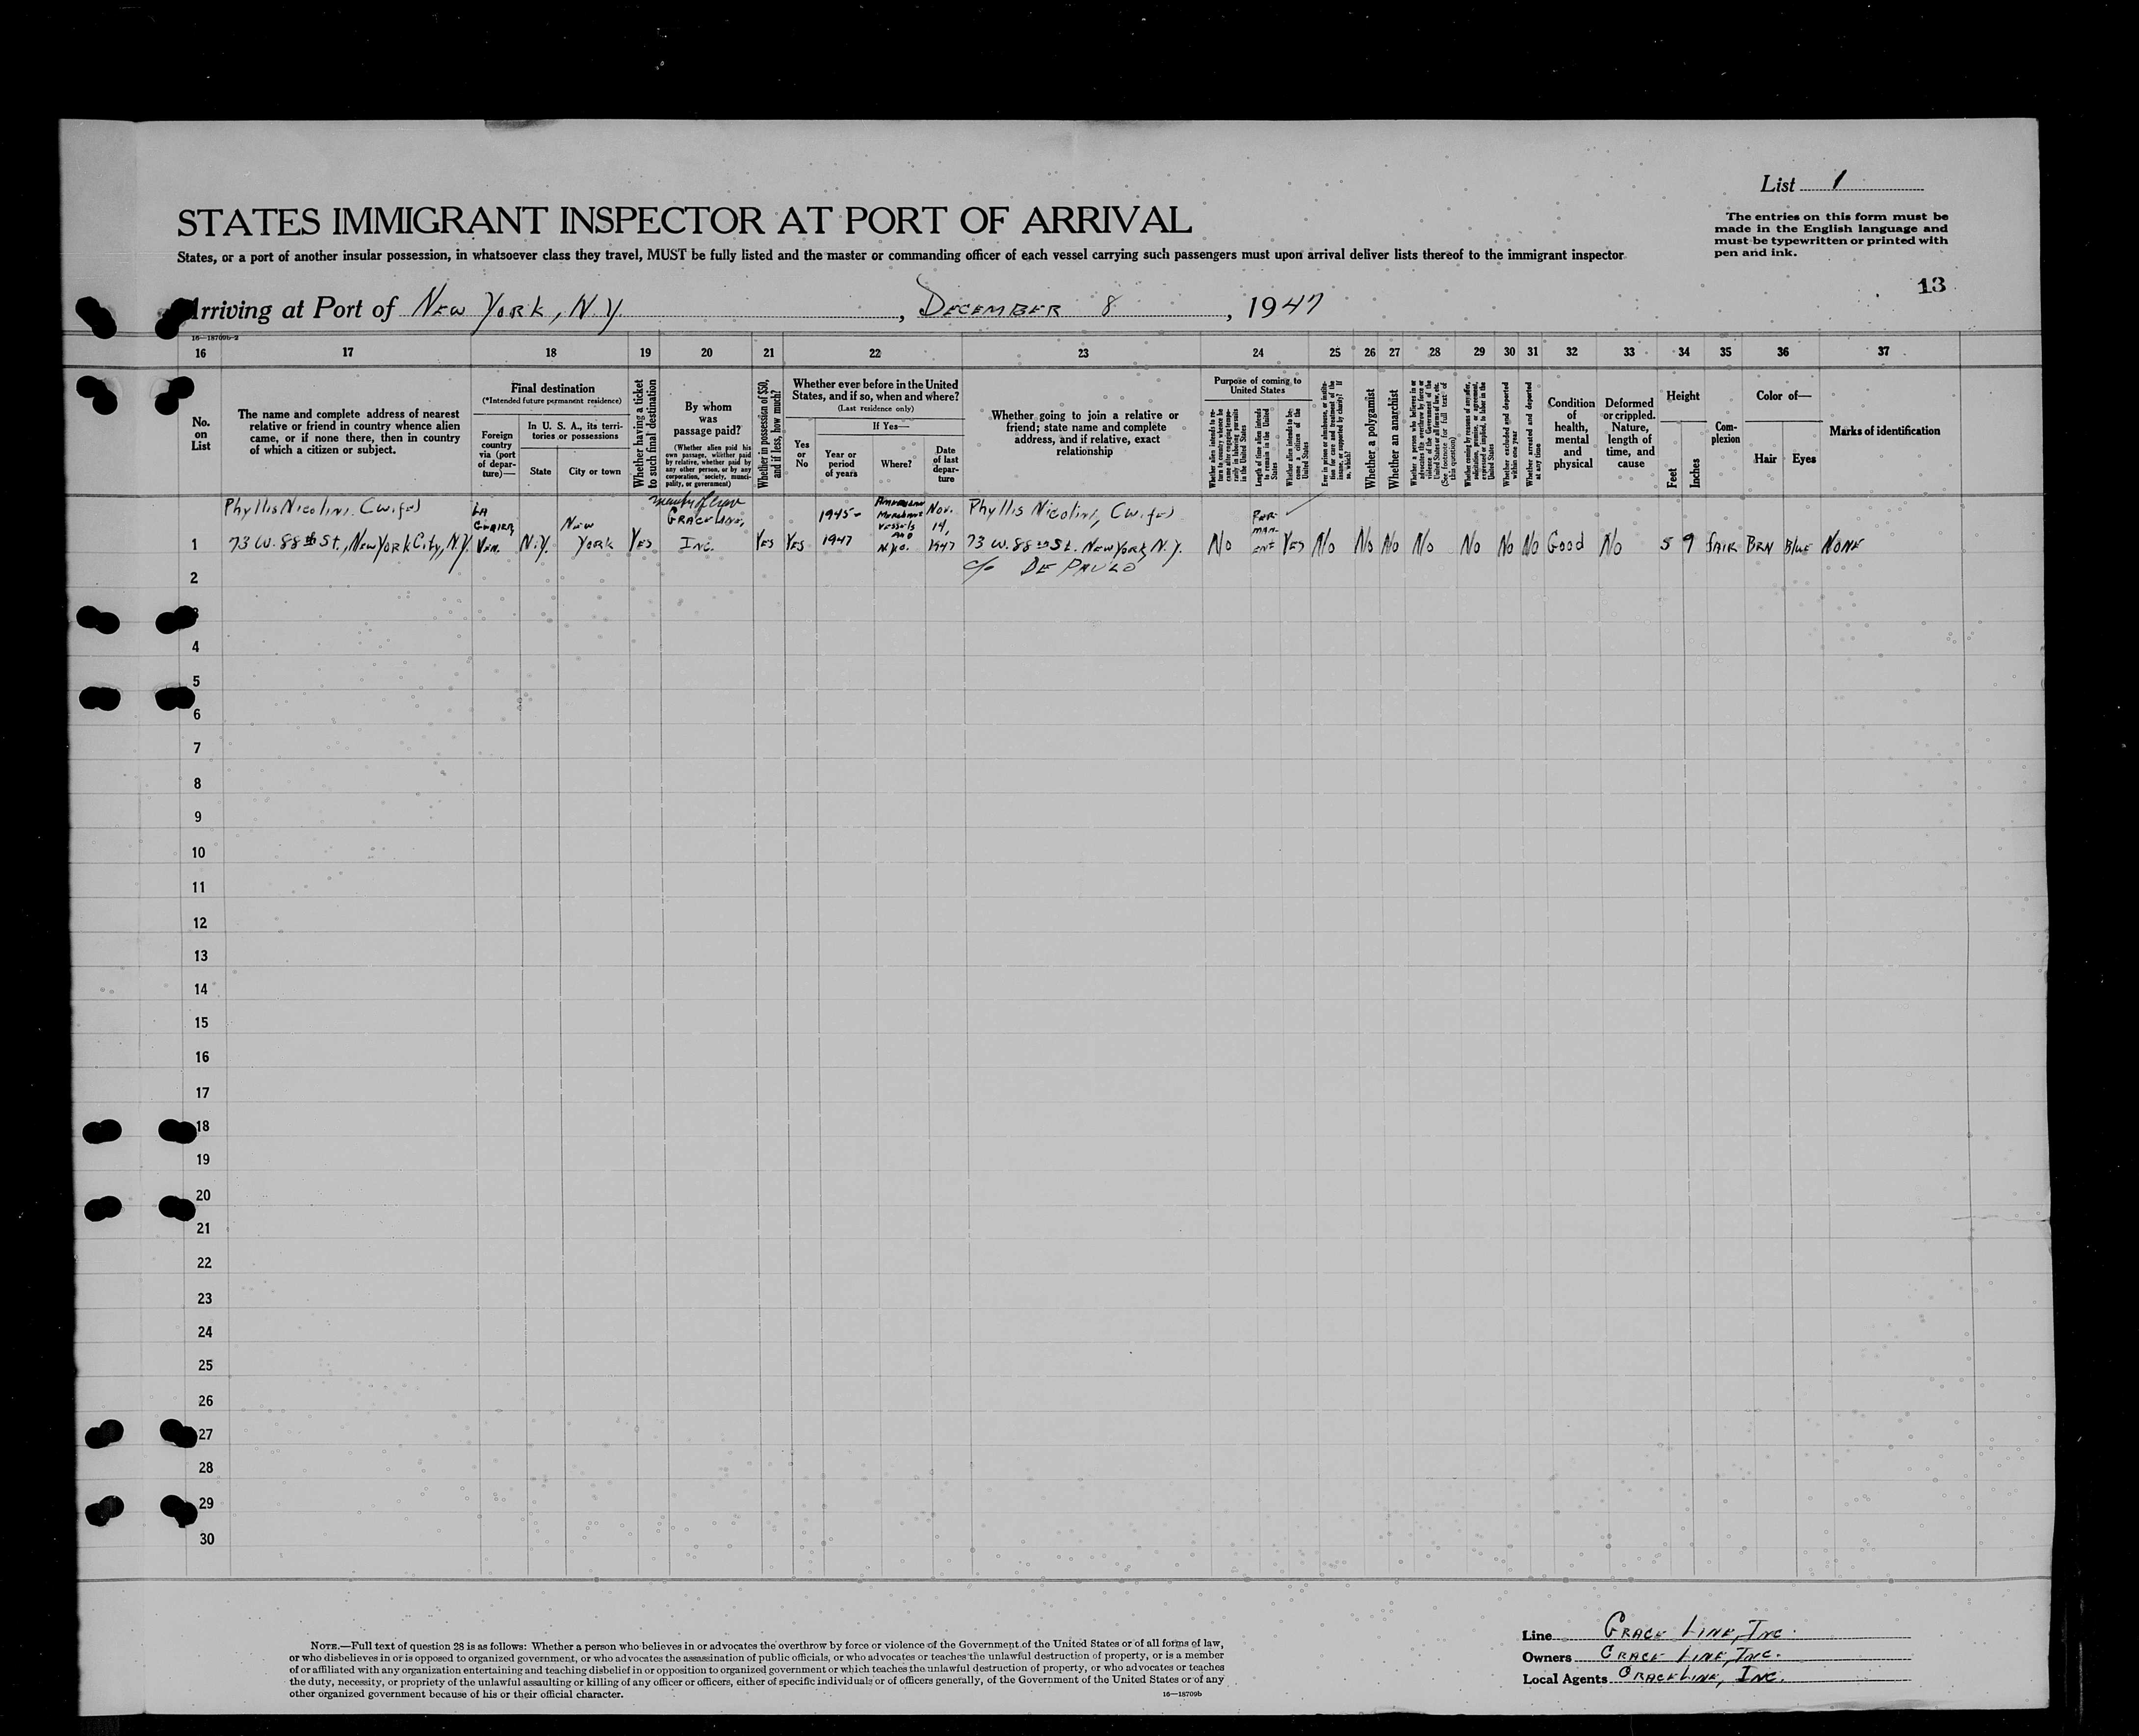 List 1
STATES IMMIGRANT INSPECTOR AT PORT OF ARRIVAL
The entries on this form must be
made in the English language and
must be typewritten or printed with
pen and ink.
States, or a port of another insular possession, in whatsoever class they travel, MUST be fully listed and the master or commanding officer of each vessel carrying such passengers must upon arrival deliver lists thereof to the immigrant inspector
13
Arriving at Port of New York, N.Y. , December 8 , 1947
16—18709b-2
16 17 18 19 20 21 22 23 24 25 26 27 28 29 30 31 32 33 34 35 36 37
No.
on
List
The name and complete address of nearest
relative or friend in country whence alien
came, or if none there, then in country
of which a citizen or subject.
Final destination
(*Intended future permanent residence)
Foreign
country
via (port
of depar-
ture)—
In U. S. A., its terri-
tories or possessions
State
City or town
Whether having a ticket
to such final destination
By whom
was
passage paid?
(Whether alien paid his
own passage, whether paid
by relative, whether paid by
any other person, or by any
corporation, society, munici-
pality, or government)
Whether in possession of $50,
and if less, how much?
Whether ever before in the United
States, and if so, when and where?
(Last residence only)
Yes
or
No
If Yes—
Year or
period
of years
Where?
Date
of last
depar-
ture
Whether going to join a relative or
friend; state name and complete
address, and if relative, exact
relationship
Purpose of coming to
United States
Whether alien intends to re-
turn to country whence he
came after engaging tempo-
rarily in laboring pursuits
in the United States
Length of time alien intends
to remain in the United
States
Whether alien intends to be-
come a citizen of the
United States
Ever in prison or almshouse, or institu-
tion for care and treatment of the
insane, or supported by charity? If
so, which?
Whether a polygamist
Whether an anarchist
Whether a person who believes in or
advocates the overthrow by force or
violence of the Government of the
United States or all forms of law, etc.
(See footnote for full text of
this question)
Whether coming by reasons of any offer,
solicitation, promise, or agreement,
expressed or implied, to labor in the
United States
Whether excluded and deported
within one year
Whether arrested and deported
at any time
Condition
of
health,
mental
and
physical
Deformed
or crippled.
Nature,
length of
time, and
cause
Height
Feet
Inches
Com-
plexion
Color of—
Hair
Eyes
Marks of identification
1
Phyllis Nicolini (wife)
73 W. 88th St., New York City, N.Y.
LA
Ven.
N.Y.
New
York
Yes
member of crew
Grace Line,
Inc.
Yes
Yes
1945-
1947
American
Merchant
Vessels
and
N.Y.C.
Nov.
14,
1947
Phyllis Nicolini, (wife)
73 W. 88th St. New York, N.Y.
c/o De Paulo
No
Per-
man-
ent
Yes
No
No
No
No
No
No
No
Good
No
5
9
Fair
Brn
Blue
None
2
3
4
5
6
7
8
9
10
11
12
13
14
15
16
17
18
19
20
21
22
23
24
25
26
27
28
29
30
NOTE.—Full text of question 28 is as follows: Whether a person who believes in or advocates the overthrow by force or violence of the Government of the United States or of all forms of law,
or who disbelieves in or is opposed to organized government, or who advocates the assassination of public officials, or who advocates or teaches the unlawful destruction of property, or is a member
of or affiliated with any organization entertaining and teaching disbelief in or opposition to organized government or which teaches the unlawful destruction of property, or who advocates or teaches
the duty, necessity, or propriety of the unlawful assaulting or killing of any officer or officers, either of specific individuals or of officers generally, of the Government of the United States or of any
other organized government because of his or their official character.
16—18709b
Line Grace Line, Inc.
Owners Grace Line, Inc.
Local Agents Grace Line, Inc.